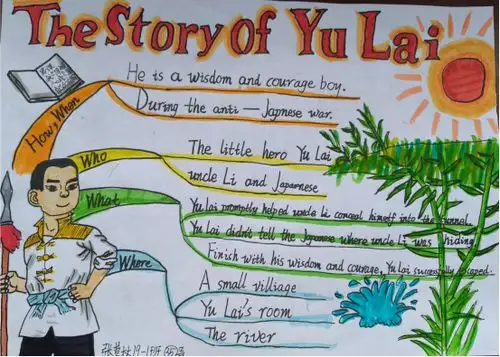 The Story Of Yu Lai
How, When
He is a wisdom and courage boy.
During the anti — Japnese war.
Who
The little hero Yu Lai
uncle Li and Japarnese
What
Yu Lai promptly helped uncle Li conceal himself into the tunnel.
Yu Lai didn't tell the Japanese where uncle Li was hiding
Finish with his wisdom and courage, Yu Lai successfully escaped.
Where
A small villiage
Yu Lai's room
The river